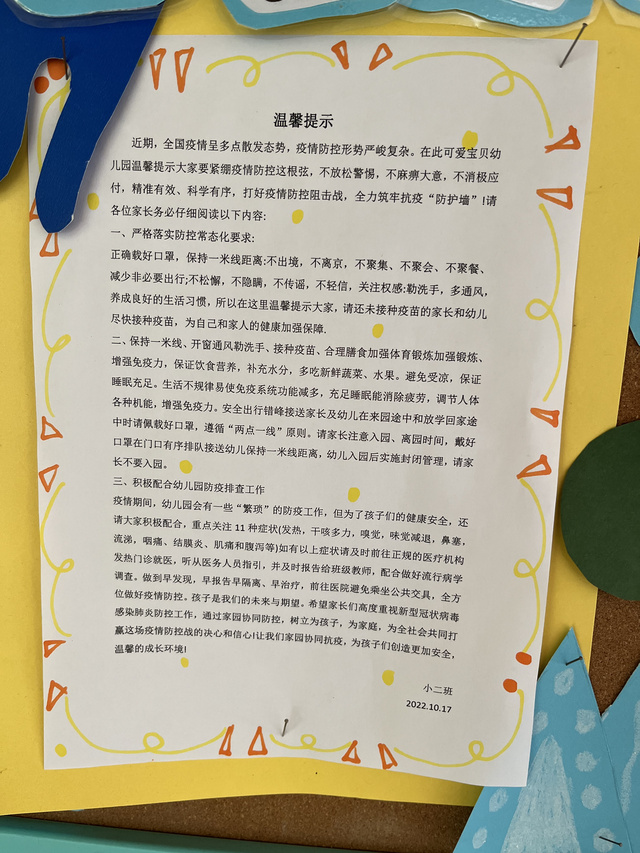 温馨提示
近期，全国疫情呈多点散发态势，疫情防控形势严峻复杂。在此可爱宝贝幼
儿园温馨提示大家要紧绷疫情防控这根弦，不放松警惕，不麻痹大意，不消极应
付，精准有效、科学有序，打好疫情防控阻击战，全力筑牢抗疫“防护墙”!请
各位家长务必仔细阅读以下内容:
一、严格落实防控常态化要求:
正确戴好口罩，保持一米线距离:不出境，不离京，不聚集、不聚会、不聚餐、
减少非必要出行;不松懈，不隐瞒，不传谣，不轻信，关注权感:勤洗手，多通风，
养成良好的生活习惯，所以在这里温馨提示大家，请还未接种疫苗的家长和幼儿
尽快接种疫苗，为自己和家人的健康加强保障.
二、保持一米线、开窗通风勤洗手、接种疫苗、合理膳食加强体育锻炼加强锻炼、
增强免疫力，保证饮食营养，补充水分，多吃新鲜蔬菜、水果。避免受凉，保证
睡眠充足。生活不规律易使免疫系统功能减多，充足睡眠能消除疲劳，调节人体
各种机能，增强免疫力。安全出行错峰接送家长及幼儿在来园途中和放学回家途
中时请佩戴好口罩，遵循“两点一线”原则。请家长注意入园、离园时间，戴好
口罩在门口有序排队接送幼儿保持一米线距离，幼儿入园后实施封闭管理，请家
长不要入园。
三、积极配合幼儿园防疫排查工作
疫情期间，幼儿园会有一些“繁琐”的防疫工作，但为了孩子们的健康安全，还
请大家积极配合，重点关注11种症状(发热，干咳多力，嗅觉，味觉减退，鼻塞，
流涕，咽痛、结膜炎、肌痛和腹泻等)如有以上症状请及时前往正规的医疗机构
发热门诊就医，听从医务人员指引，并及时报告给班级教师，配合做好流行病学
调查。做到早发现，早报告早隔离、早治疗，前往医院避免乘坐公共交具，全方
位做好疫情防控。孩子是我们的未来与期望。希望家长们高度重视新型冠状病毒
感染肺炎防控工作，通过家园协同防控，树立为孩子，为家庭，为全社会共同打
赢这场疫情防控战的决心和信心!让我们家园协同抗疫，为孩子们创造更加安全，
温馨的成长环境!
小二班
2022.10.17